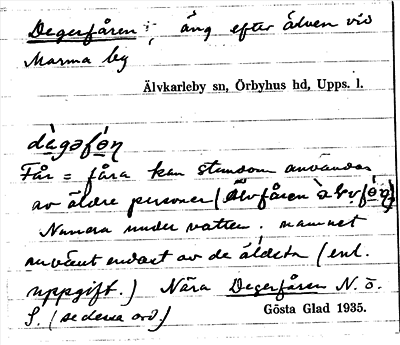 Degerfåren, äng efter älven vid
Marma by
Älvkarleby sn, Örbyhus hd, Upps. l.
dàgəfǿṇ
Får = fåra kan stundom användas
av äldre personer (Älvfåren
Numera under vatten. namnet
använt endast av de äldsta (enl.
uppgift.) Nära Degerfåren N. ö.
S. (se dessa ord.)
Gösta Glad 1935.